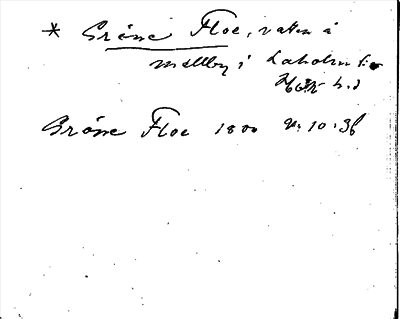 * Gröne Floe, vatten å
mellby i Laholm
Hök h.d
Gröne Floe 1800 v: 10: 36